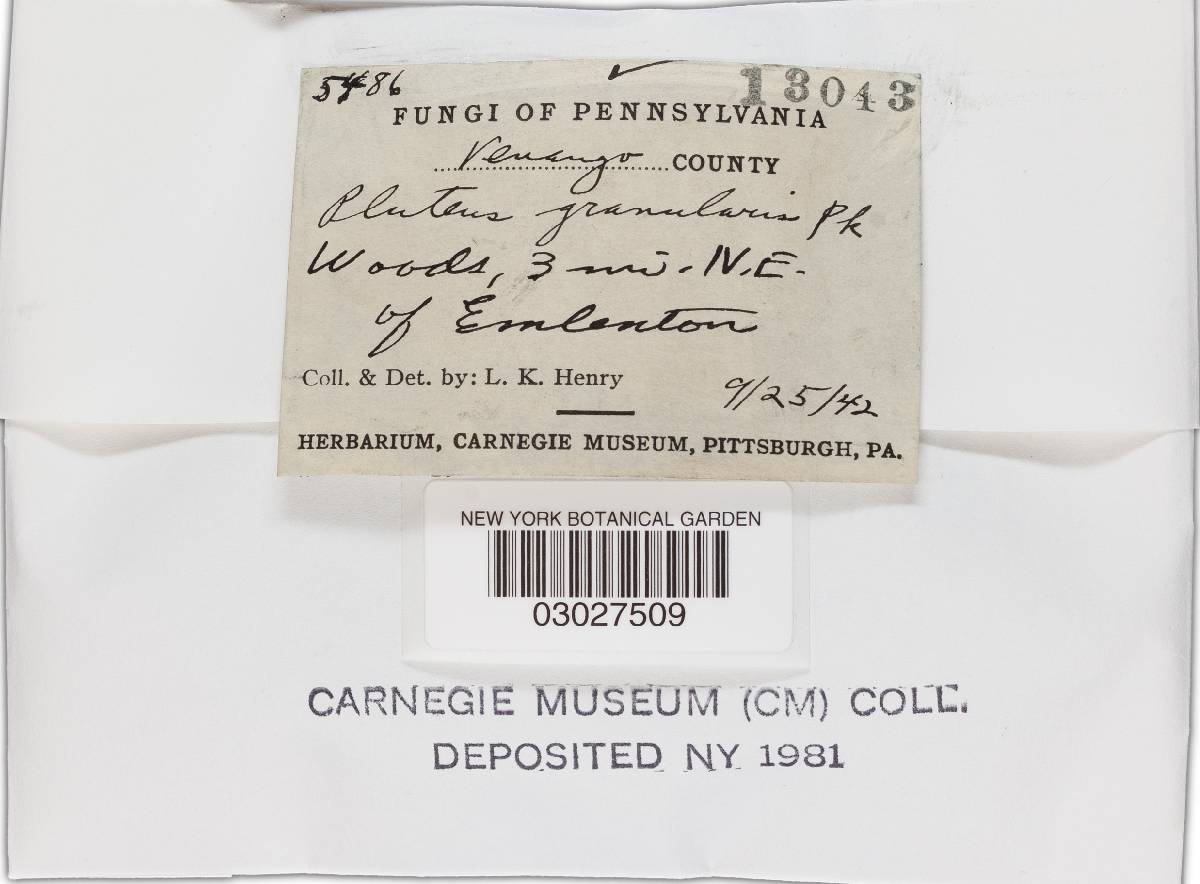 5486 13043
FUNGI OF PENNSYLVANIA
Venango COUNTY
Pluteus granularis Pk
Woods, 3 mi. N.E.
of Emlenton
Coll. & Det. by: L. K. Henry 9/25/42
HERBARIUM, CARNEGIE MUSEUM, PITTSBURGH, PA.
NEW YORK BOTANICAL GARDEN
03027509
CARNEGIE MUSEUM (CM) COLL.
DEPOSITED NY 1981